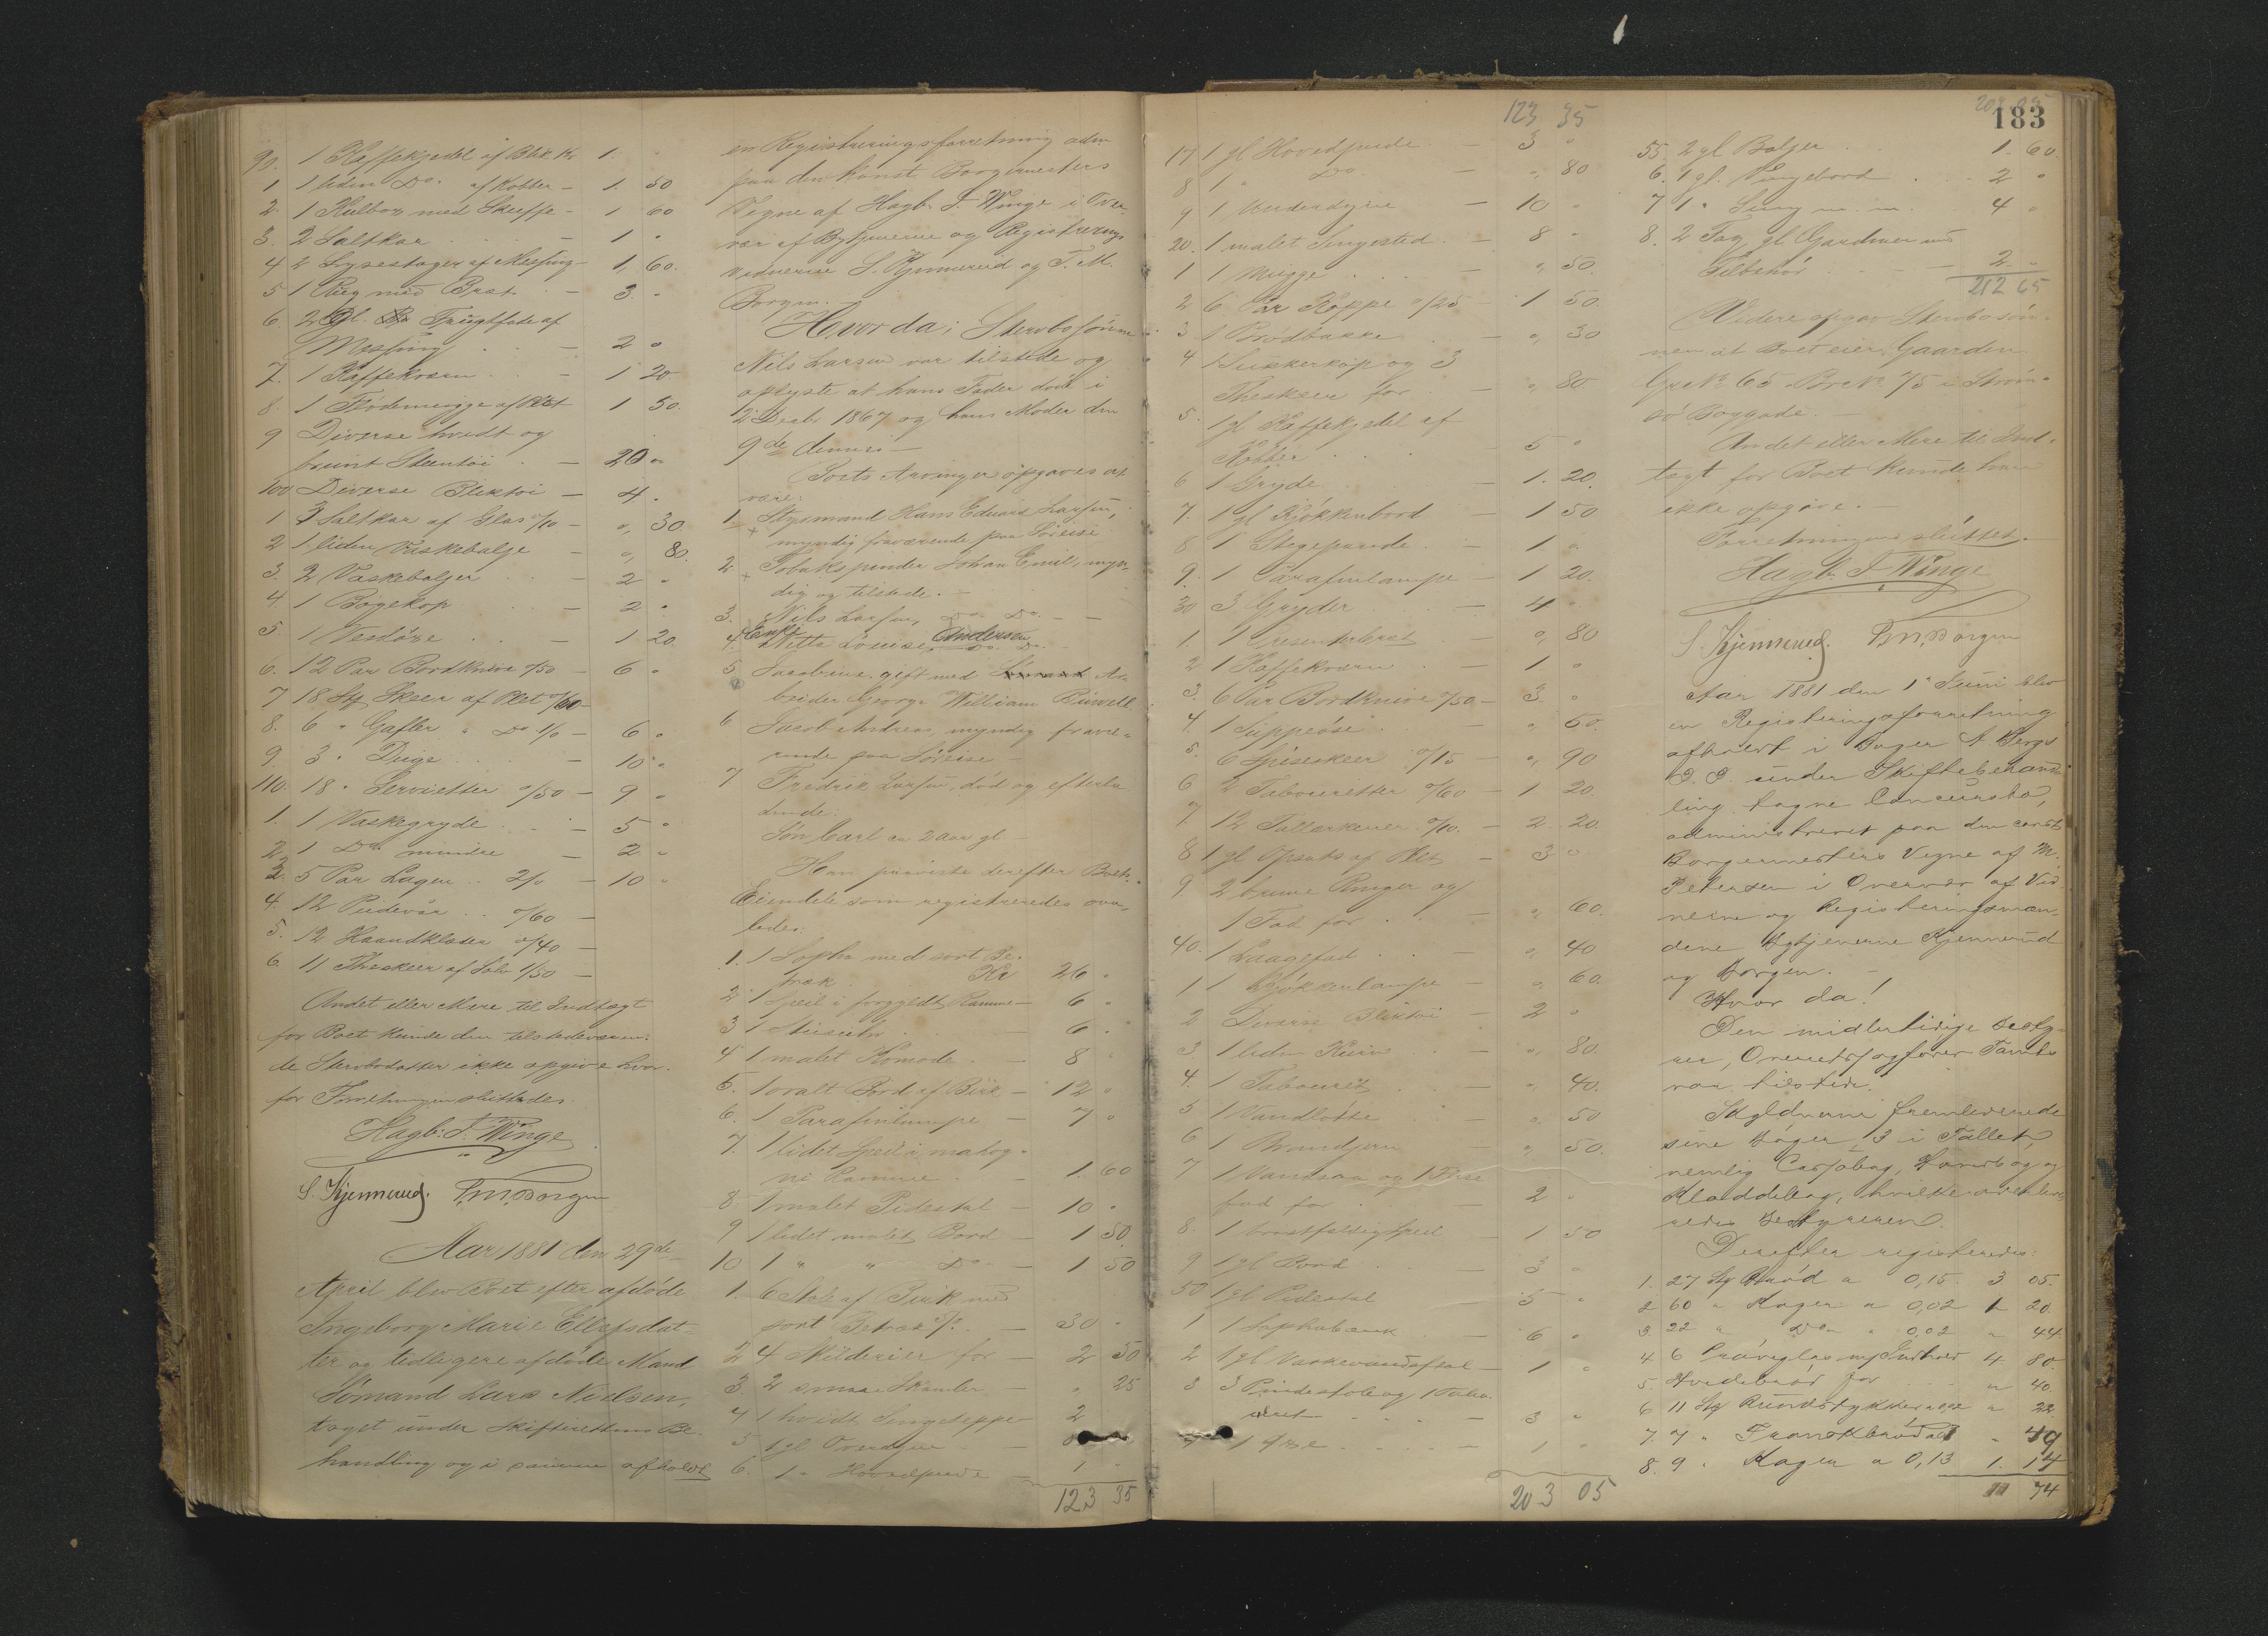 90. 1 Kaffekjedel af Blik Kr 1. "
1 1 liden Do. af Kobber - 1. 50
2. 1 Kulbox med Skuffe - 1 60
3. 2 Saltkar - 1 "
4 2 Lysestager af Messing - 1, 60.
5 1 med Bræt - 3. "
6. 2 Gl. Frugtfade af
Messing - 2 "
7. 1 Kaffekværn - 1 20
8. 1 Flødemugge af Plet 1 50.
9 Diverse hvidt og
brunt Steentøi - 20 "
100 Diverse Bliktøi - 4.
1 3 Saltkar af Glas "/10 - ", 30
2 1 liden Vaskebalje - ", 80.
3. 2 Vaskebaljer - 2 "
4. 1 Bøgekop - 2 "
5. 1 - 1 20
6. 12 Par Bordknive "/50 - 6 "
7 18 Stk Skeer af Plet "/60 -
8. 6 " Gafler " Do 1/0 - 6 "
9. 3 " Duge - 10 "
110. 18 " Servietter "/50 - 9 "
1. 1 Vaskegryde - 5 "
2. 1 Do mindre - 2 "
3. 5 Par Lagen 2/0 - 10 "
4. 12 Pudevår "/60 -
5. 12 Haandklæder "/40 -
6. 11 Theskeer af Sølv 1/50 -
Andet eller Mere til Indtægt
for Boet kunde den tilstedeværen-
de Stervbodatter ikke opgive hvor-
for Forretningen sluttedes.
Hagb. F. Winge
S. Kjennerud. T. M. Borgen
Aar 1881 den 29de
April blev Boet efter afdøde
Ingeborg Marie Ellefsdat-
ter og tidligere afdøde Mand
Sømand Lars Nielsen,
taget under Skifterettens Be-
handling og i samme afholdt
en Registreringsforretning adm
paa den konst. Borgermesters
Vegne af Hagb. F. Winge i Over-
vær af Bytjenerne og Registrerings
vidnerne S. Kjennerud og T. M.
Borgen. -
Hvor da: Stervbosønnen
Nils Larsen var tilstede og
oplyste at hans Fader døde i
Decbr 1867 og hans Moder den
9de dennes -
Boets Arvinger opgaves at
være:
1. Styrmand Hans Eduard Larsen,
myndig fraværende paa Søreise
2 Tobakspinder Johan Emil, myn-
dig og tilstede. -
3. Nils Larsen, Do Do - -
4. Enke Nette Lovise Andersen Do. Do.
5. Jacobine gift med Ar-
beider George William
6 Jacob Andreas, myndig fravæ-
rende paa Søreise -
7 Fredrik Larsen, død og efterla-
dende:
Søn Carl ca 2 aar gl -
Han paaviste derefter Boets
Eiendele som registreredes saa-
ledes:
1. 1 Sopha med sort Be-
træk Kr 26 "
2 1 Speil i forgyldt Ramme - 6 "
3 1 - 6 "
4 1 malet Komode - 8 "
5. 1 ovalt Bord af Birk - 12 "
6. 1 Parafinlampe - 7 "
7. 1 lidet Speil i mahog-
ni Ramme - 1. 60
8 1 malet Pidestal - 10 "
9 1 lidet malet Bord - 1 50
10 1 " " Do - 1 50
1. 6 Stole af Birk med
sort Betræk - 30 "
2 4 Skilderier for - 2 50
3. 2 smaa Skamler - " 25
4 1 hvidt Sengeteppe 2
5 1 gl Overdyne -
6. 1 " Hovedpude - 1 "
123 35
123 35
17 1 gl Hovedpude - 3 "
8 1 " Do - ", 80
9 1 Underdyne - 10 "
20. 1 malet Sengested - 8 "
1 1 Mugge - ", 50.
2 6 Par Koppe "/25 - 1 50.
3 1 Brødbakke - ", 30
4 1 Sukkerkop og 3
Theskeer for - ", 80
5. 1 gl Kaffekjedel af
Kobber - 5 "
6 1 Gryde - 1. 20.
7. 1 gl Kjøkkenbord - 1 50
8 1 Stegepande - 1 "
9. 1 Parafinlampe - 1 20.
30 3 Gryder - 4 "
1. 1 Presenterbret - ", 80
2 1 Kaffekværn - 1 "
3. 6 Par Bordknive "/50 - 3. "
4. 1 Suppeøse - ", 50.
5. 6 Spiseskeer "/15 - ", 90
6 2 Tabouretter "/60 - 1 20.
7. 12 Tallerkener "/10. - 2. 20.
8 1 gl Opsats af Plet - 3 "
9. 2 brune Ringer og
1 Fad for - ", 60.
40. 1 Laagefad - ", 40
1 1 Kjøkkenlampe - ", 60.
2 Diverse Bliktøi - 2 "
3. 1 liden Kurv - ", 80.
4. 1 Tabouret - ", 40.
5 1 Vandbøtte - ", 50
6 1 Brandjern - ", 50.
7 1 og 1
fad for - 2 "
8. 1 brøstfeldig Speil - 1 50
9 1 gl Bord - 3 "
50 1 gl Pidestal 5 "
1 1 Sophabænk - 6 "
2 1 gl - 1 "
3 3 Pindestole og 1 Tabu-
uret - 3 "
4 1 Øxe - 1 "
203 05
203 05
183
55. 2 gl Baljer 1. 60.
6. 1 gl. 2 "
7 1 " Seng m. m. 4 "
8. 2 Fag gl Gardiner med
Tilbehør - 2 "
212 65
Videre opgav Stervbosøn-
nen at Boet eier Gaarden
No 65 No 75 i Strøm-
sø Baggade.
Andet eller Mere til Ind-
tægt for Boet kunde han
ikke opgive. -
Forretningen sluttet. -
Hagb. F. Winge
S. Kjennerud. T. M. Borgen
Aar 1881 den 1 Juni blev
en Registeringsforretning
afholdt i Bager A. Bergs
under Skiftebehand-
ling tagne Concursbo,
administreret paa den const.
Borgermesters Vegne af M.
Petersen i Overvær af Vid-
nerne og Registeringsmæn-
dene Bytjenerne Kjennerud
og Borgen. -
Hvor da!
Den midlertidige Besty-
rer, Overretssagfører
var tilstede.
Skyldneren fremleverede
sine Bøger, 3 i Tallet,
nemlig Cassabog, Hovedbog og
Kladdebog, hvilke overleve-
redes Bestyreren.
Derefter registeredes:
1. 27 Stk Brød a 0,15. 3 05.
2 60 " Kager a 0,02 1 20.
3. 22 " Do " 0,02 " 44.
4. 6 Prøveglas m/ Indhold 4. 80.
5. Hvedebrød for " 40.
6 11 Stk Rundstykker a 0,02 " 22
7. 7 " Franskbrød " 49
8. 9 " Kager a 0,13 1. 17
11 74